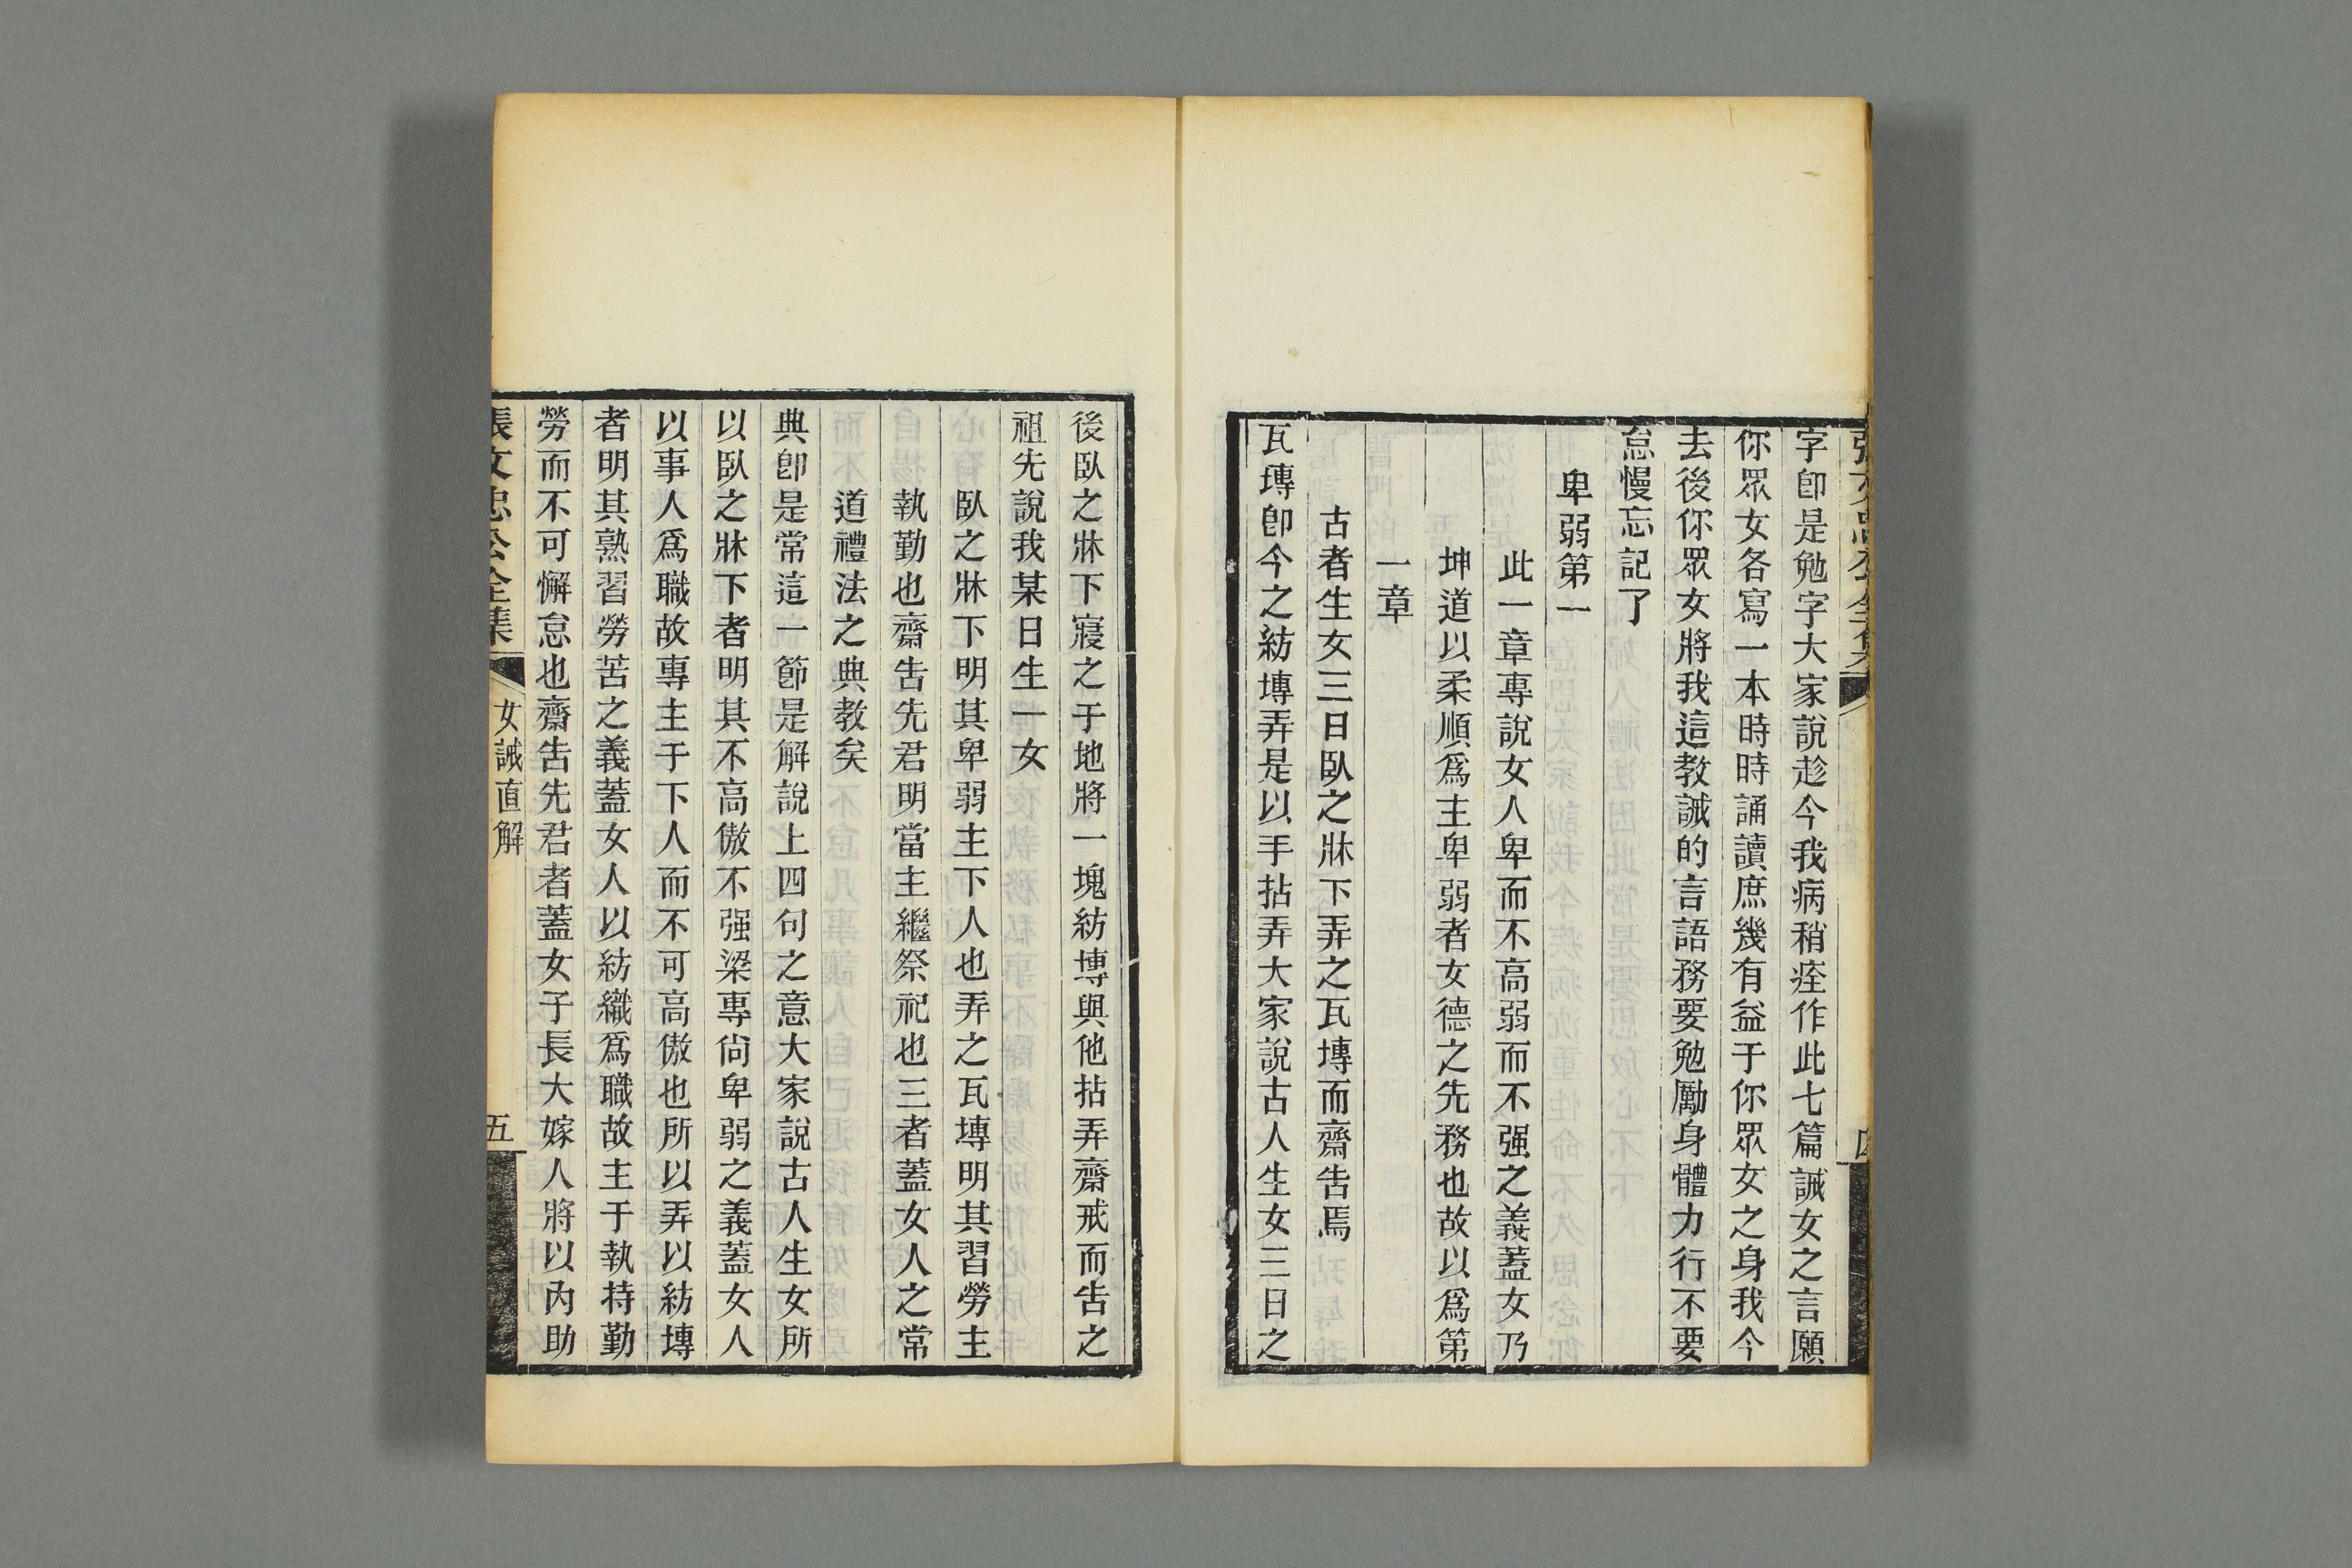 張文忠公全集
字卽是勉字大家說趁今我病稍痊作此七篇誡女之言願
你眾女各寫一本時時誦讀庶幾有益于你眾女之身我今
去後你眾女將我這教誡的言語務要勉勵身體力行不要
怠慢忘記了
卑弱第一
此一章專說女人卑而不高弱而不强之義蓋女乃
坤道以柔順爲主卑弱者女德之先務也故以爲第
一章
古者生女三日臥之牀下弄之瓦塼而齋告焉
瓦塼卽今之紡塼弄是以手拈弄大家說古人生女三日之
後臥之牀下寢之于地將一塊紡塼與他拈弄齋戒而告之
祖先說我某日生一女
臥之牀下明其卑弱主下人也弄之瓦塼明其習勞主
執勤也齋告先君明當主繼祭祀也三者蓋女人之常
道禮法之典教矣
典卽是常這一節是解說上四句之意大家說古人生女所
以臥之牀下者明其不高傲不强梁專尙卑弱之義蓋女人
以事人爲職故專主于下人而不可高傲也所以弄以紡塼
者明其熟習勞苦之義蓋女人以紡織爲職故主于執持勤
勞而不可懈怠也齋告先君者蓋女子長大嫁人將以內助
張文忠公全集 女誡直解 五